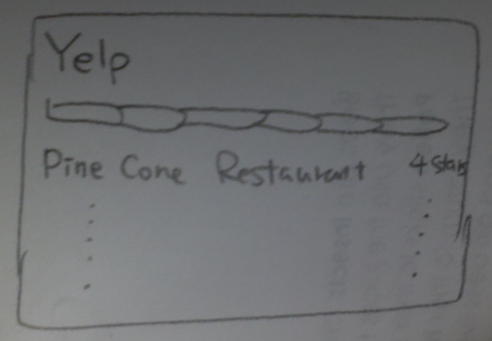 Yelp
Pine Cone Restaurant 4 stars